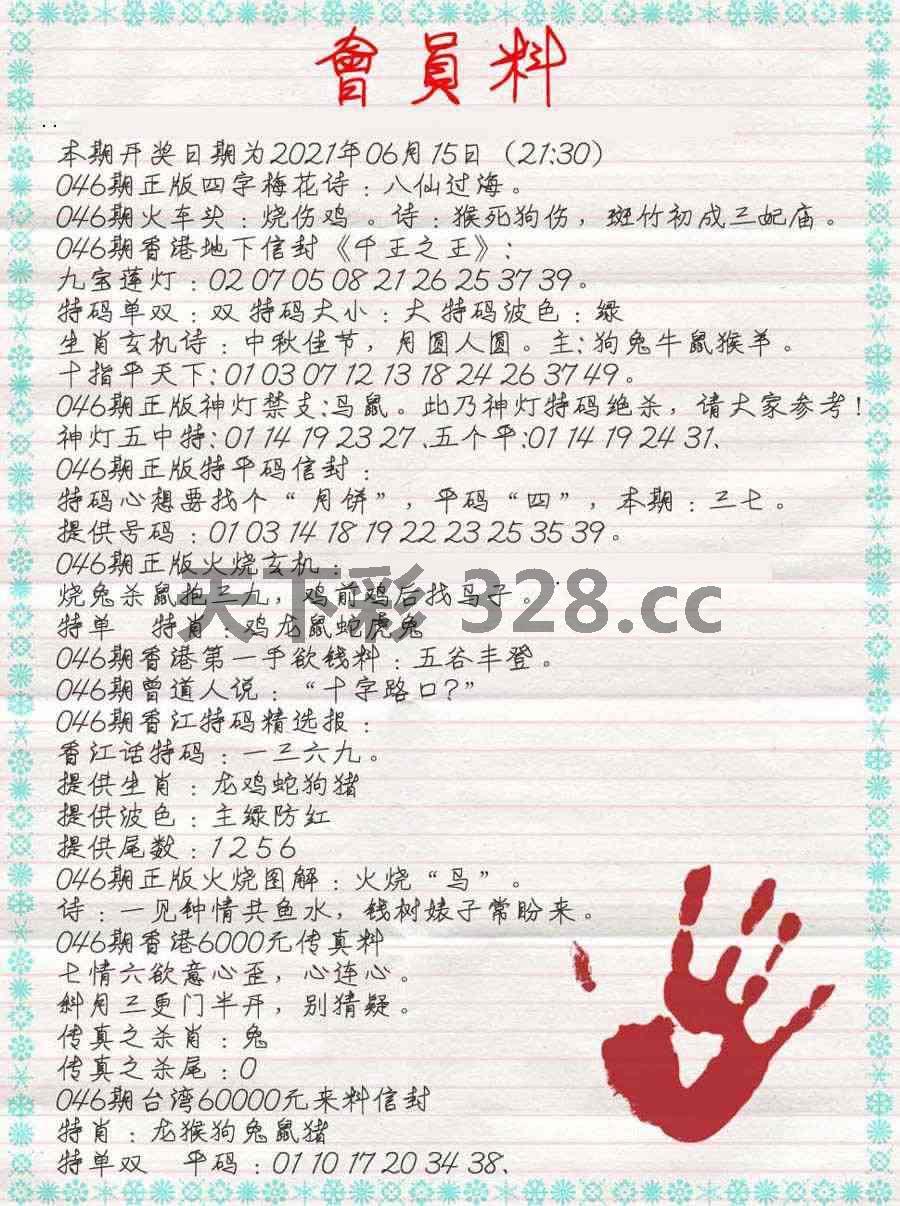 會員料
..
本期开奖日期为2021年06月15日（21:30）
046期正版四字梅花诗：八仙过海。
046期火车头：烧伤鸡。诗：猴死狗伤，斑竹初成三妃庙。
046期香港地下信封《千王之王》：
九宝莲灯：02 07 05 08 21 26 25 37 39。
特码单双：双 特码大小：大 特码波色：绿
生肖玄机诗：中秋佳节，月圆人圆。主：狗兔牛鼠猴羊。
十指平天下：01 03 07 12 13 18 24 26 37 49。
046期正版神灯禁支：鸟鼠。此乃神灯特码绝杀，请大家参考！
神灯五中特：01 14 19 23 27、五个平:01 14 19 24 31、
046期正版特平码信封：
特码心想要找个“月饼”，平码“四”，本期：三七。
提供号码：01 03 14 18 19 22 23 25 35 39。
046期正版火烧玄机：
烧兔杀鼠抱三九，鸡前鸡后找马子。
天下彩 328.cc
特单 特肖：鸡龙鼠蛇虎兔
046期香港第一手欲钱料：五谷丰登。
046期曾道人说：“十字路口？”
046期香江特码精选报：
香江话特码：一三六九。
提供生肖：龙鸡蛇狗猪
提供波色：主绿防红
提供尾数：1 2 5 6
046期正版火烧图解：火烧“鸟”。
诗：一见钟情共鱼水，钱树婊子常盼来。
046期香港6000元传真料
七情六欲意心歪，心连心。
斜月三更门半开，别猜疑。
传真之杀肖：兔
传真之杀尾：0
046期台湾60000元来料信封
特肖：龙猴狗兔鼠猪
特单双 平码：01 10 17 20 34 38、